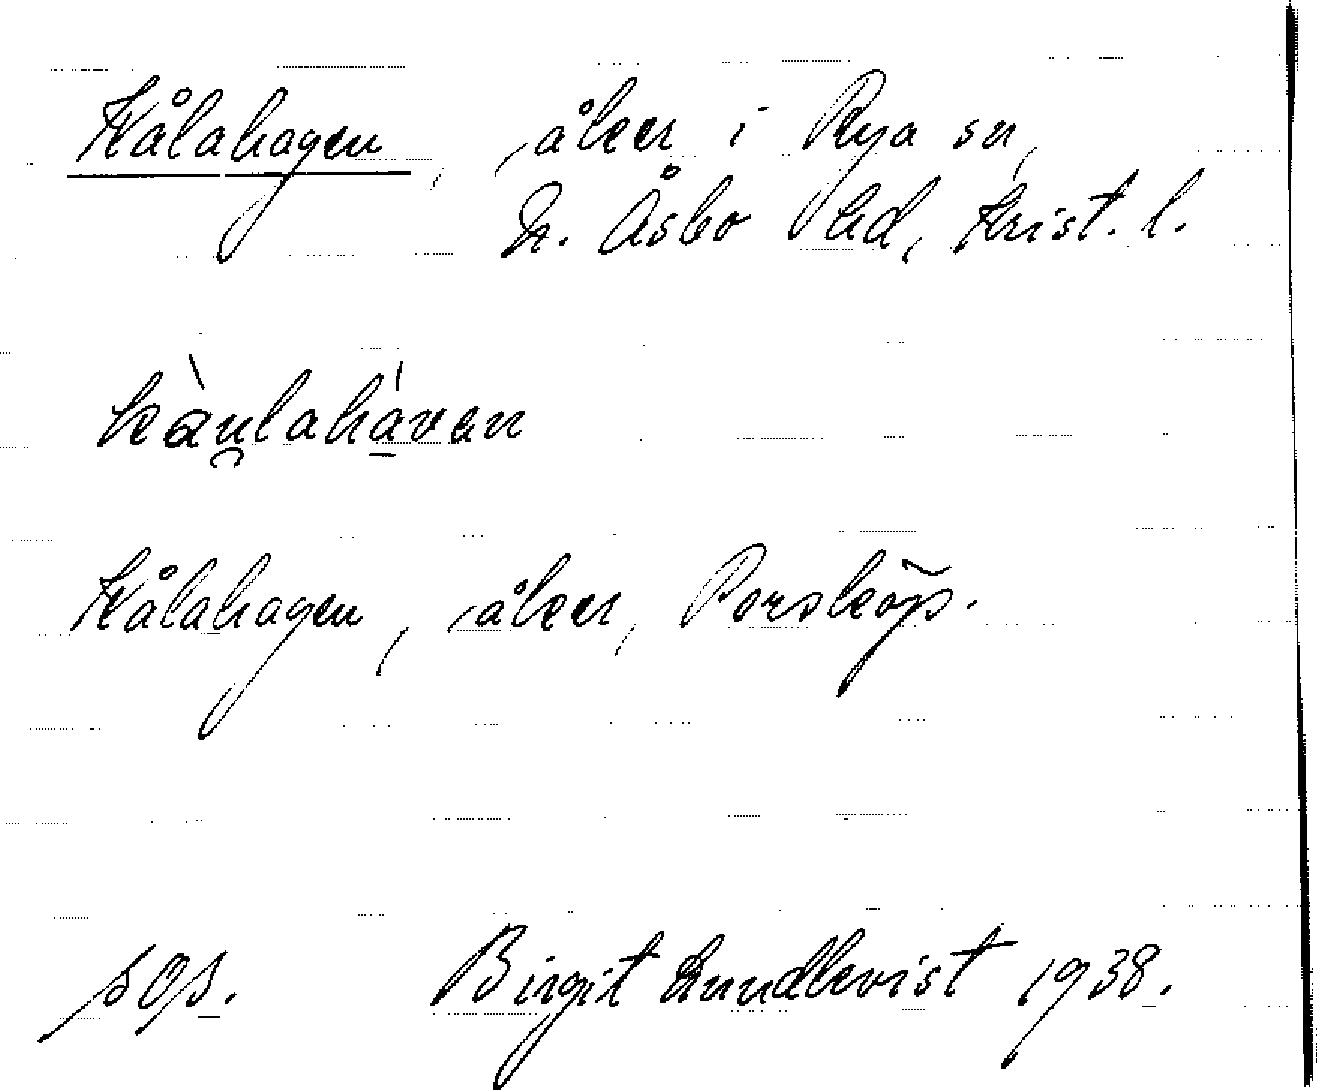 Kålahagen, åker i Rya sn,
N. Åsbo hd, Krist. l.
kàu̯lahá̱van
Kålahagen, åker, Porsköp.
Birgit Lundkvist 1938.